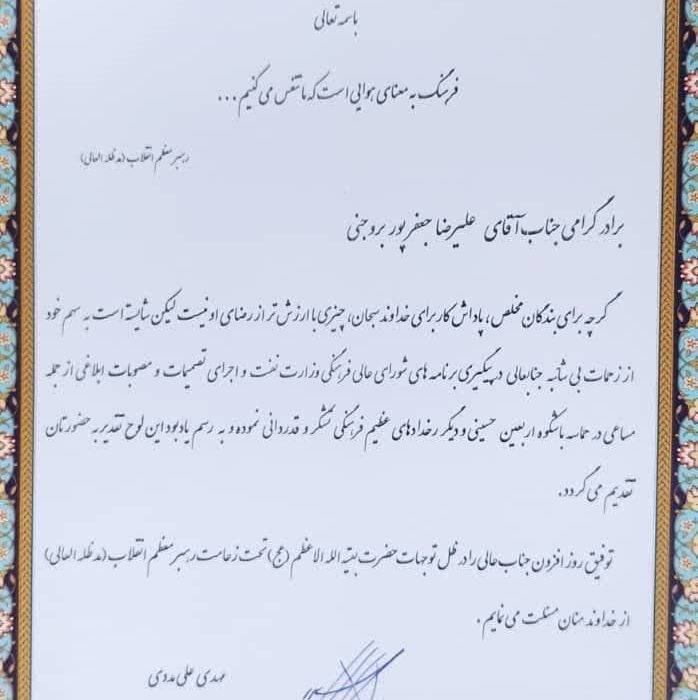 باسمه تعالی
فرهنگ به معنای هوایی است که ما تنفس می کنیم ...
رهبر معظم انقلاب (مد ظله العالی)
برادر گرامی جناب آقای علیرضا جعفرپور بروجنی
گرچه برای بندگان مخلص، پاداش کار برای خداوند سبحان، چیزی با ارزش تر از رضای او نیست لیکن شایسته است به سهم خود
از زحمات بی شائبه جنابعالی در پیگیری برنامه های شورای عالی فرهنگی وزارت نفت و اجرای تصمیمات و مصوبات ابلاغی از جمله
مساعی در حماسه باشکوه اربعین حسینی و دیگر رخدادهای عظیم فرهنگی تشکر و قدردانی نموده و به رسم یادبود این لوح تقدیر به حضورتان
تقدیم می گردد.
توفیق روز افزون جناب عالی را در ظل توجهات حضرت بقیه الله الاعظم (عج) تحت زعامت رهبر معظم انقلاب (مد ظله العالی)
از خداوند منان مسئلت می نمایم.
مهدی علی مددی